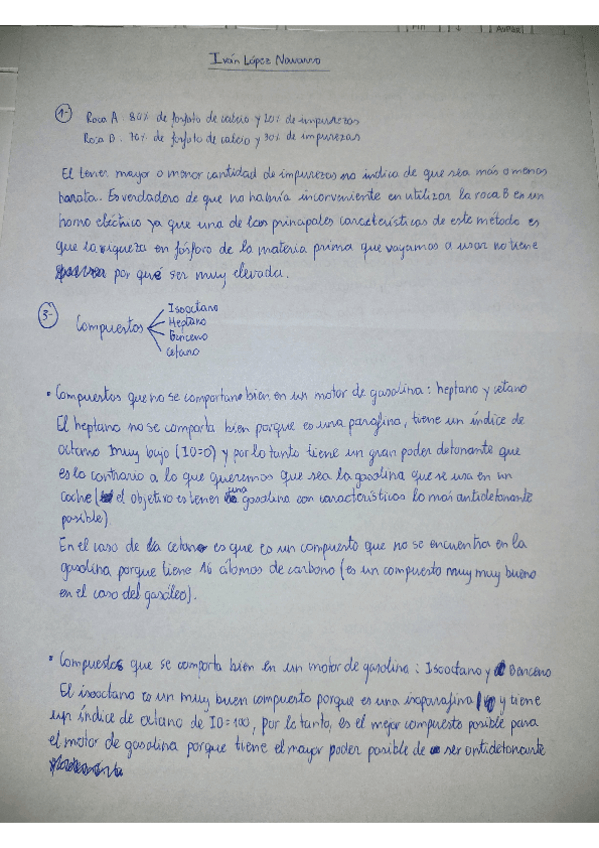 Iván López Navarro
1- Roca A: 80% de fosfato de calcio y 20% de impurezas
Roca B: 70% de fosfato de calcio y 30% de impurezas
El tener mayor o menor cantidad de impurezas no indica de que sea más o menos
barata. Es verdadero de que no habría inconveniente en utilizar la roca B en un
horno eléctrico ya que una de las principales características de este método es
que la riqueza en fósforo de la materia prima que vayamos a usar no tiene
por qué ser muy elevada.
3- Compuestos
Isooctano
Heptano
Benceno
Cetano
• Compuestos que no se comportan bien en un motor de gasolina: heptano y cetano
El heptano no se comporta bien porque es una parafina, tiene un índice de
octano muy bajo (IO=0) y por lo tanto tiene un gran poder detonante que
es lo contrario a lo que queremos que sea la gasolina que se usa en un
coche (el objetivo es tener una gasolina con características lo más antidetonante
posible)
En el caso de la cetano es que es un compuesto que no se encuentra en la
gasolina porque tiene 16 átomos de carbono (es un compuesto muy muy bueno
en el caso del gasóleo).
• Compuestos que se comporta bien en un motor de gasolina: Isooctano y Benceno
El isooctano es un muy buen compuesto porque es una isoparafina y tiene
un índice de octano de IO=100, por lo tanto, es el mejor compuesto posible para
el motor de gasolina porque tiene el mayor poder posible de ser antidetonante